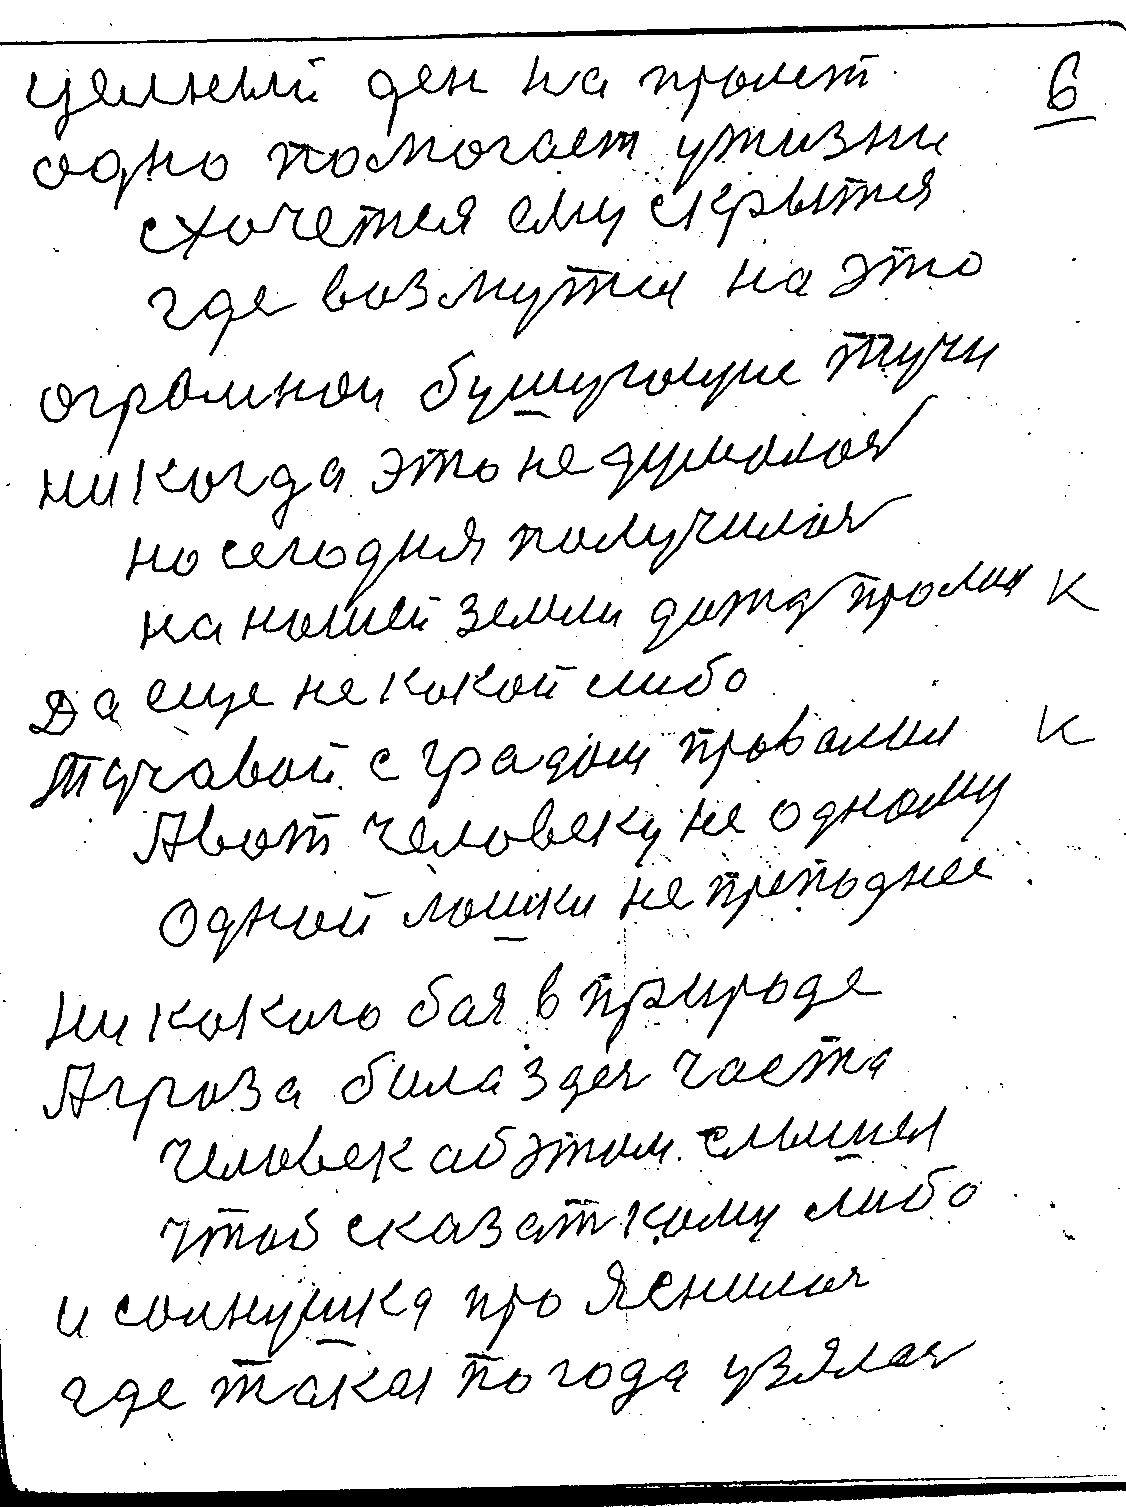 целный ден на пролет
6
одно помогает ужизни
схочетця ему скрытця
где возмутця на это
огромнои бушуюущие тучи
никогда это не думалося
но сегодня получилося
на нашей земли дожд пролил К
Да еще не какой либо
Тучавой с градом провалил К
Авот человеку не одному
Одной лошки не преподнес
Ни какого бая в природе
Агроза била здеся часта
Человек аб этом слышел
чтоб сказат кому либо
и солнушка про яснилося
где така погода узялася